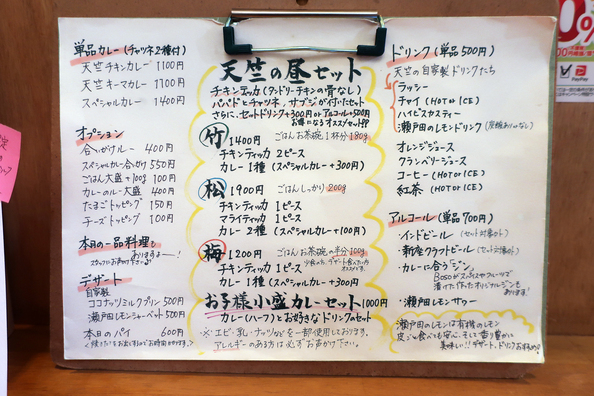 単品カレー(チャツネ2種付)
天竺チキンカレー 1100円
天竺キーマカレー 1100円
スペシャルカレー 1400円
オプション
合いがけカレー 400円
スペシャルカレー合がけ 550円
ごはん大盛 +100g 100円
カレーのルー大盛 400円
たまごトッピング 150円
チーズトッピング 100円
本日の一品料理も
ありますよー!
スタッフにお声がけ下さい!
デザート
自家製
ココナッツミルクプリン 500円
瀬戸田レモンシャーベット 500円
本日のパイ 600円
天竺の昼セット
チキンティッカ(タンドリーチキンの骨なし)
パパドとチャツネ、サブジが付いたセット
さらに、セットドリンク+300円 or アルコール+500円
お得になるオススメセット
竹 1400円 ごはんお茶碗1杯分 180g
チキンティッカ 2ピース
カレー 1種 (スペシャルカレー +300円)
松 1900円 ごはんしっかり 200g
チキンティッカ 1ピース
マライティッカ 1ピース
カレー 2種 (スペシャルカレー +100円)
梅 1200円 ごはんお茶碗の半分 100g
チキンティッカ 1ピース
カレー 1種 (スペシャルカレー +300円)
お子様小盛カレーセット 1000円
カレー(ハーフ)とお好きなドリンクのセット
※エビ・乳・ナッツなどを一部使用しております。
アレルギーのある方は必ずお声がけ下さい。
ドリンク (単品500円)
天竺の自家製ドリンクたち
ラッシー
チャイ (HOT or ICE)
ハイビスカスティー
瀬戸田のレモンドリンク
オレンジジュース
クランベリージュース
コーヒー (HOT or ICE)
紅茶 (HOT or ICE)
アルコール (単品700円)
・インドビール (セット対象外)
・新座クラフトビール (セット対象外)
・カレーに合う「ジン」
あります!
・瀬戸田レモンサワー
瀬戸田のレモンは有機のレモン
皮ごと食べても安心、そして香り豊かに
美味しい!!デザート、ドリンク
PayPay